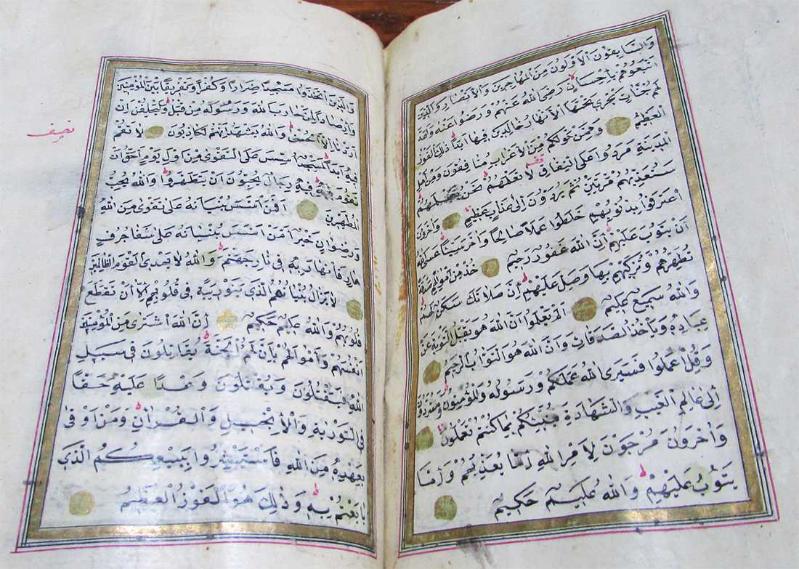 وَالسَّابِقُونَ الْاَوَّلُونَ مِنَ الْمُهَاجِرِينَ وَالْاَنْصَارِ وَالَّذِينَ
اتَّبَعُوهُمْ بِاِحْسَانٍ رَضِيَ اللهُ عَنْهُمْ وَرَضُوا عَنْهُ وَاَعَدَّ
لَهُمْ جَنَّاتٍ تَجْرِي تَحْتَهَا الْاَنْهَارُ خَالِدِينَ فِيهَا اَبَدًا ذٰلِكَ الْفَوْزُ
الْعَظِيمُ وَمِمَّنْ حَوْلَكُمْ مِنَ الْاَعْرَابِ مُنَافِقُونَ وَمِنْ اَهْلِ
الْمَدِينَةِ مَرَدُوا عَلَى النِّفَاقِ لَا تَعْلَمُهُمْ نَحْنُ نَعْلَمُهُمْ
سَنُعَذِّبُهُمْ مَرَّتَيْنِ ثُمَّ يُرَدُّونَ اِلٰى عَذَابٍ عَظِيمٍ وَاٰخَرُونَ
اعْتَرَفُوا بِذُنُوبِهِمْ خَلَطُوا عَمَلًا صَالِحًا وَاٰخَرَ سَيِّئًا عَسَى اللهُ
اَنْ يَتُوبَ عَلَيْهِمْ اِنَّ اللهَ غَفُورٌ رَحِيمٌ خُذْ مِنْ اَمْوَالِهِمْ صَدَقَةً
تُطَهِّرُهُمْ وَتُزَكِّيهِمْ بِهَا وَصَلِّ عَلَيْهِمْ اِنَّ صَلَاتَكَ سَكَنٌ لَهُمْ
وَاللهُ سَمِيعٌ عَلِيمٌ اَلَمْ يَعْلَمُوا اَنَّ اللهَ هُوَ يَقْبَلُ التَّوْبَةَ عَنْ
عِبَادِهِ وَيَأْخُذُ الصَّدَقَاتِ وَاَنَّ اللهَ هُوَ التَّوَّابُ الرَّحِيمُ
وَقُلِ اعْمَلُوا فَسَيَرَى اللهُ عَمَلَكُمْ وَرَسُولُهُ وَالْمُؤْمِنُونَ وَسَتُرَدُّونَ
اِلٰى عَالِمِ الْغَيْبِ وَالشَّهَادَةِ فَيُنَبِّئُكُمْ بِمَا كُنْتُمْ تَعْمَلُونَ
وَاٰخَرُونَ مُرْجَوْنَ لِاَمْرِ اللهِ اِمَّا يُعَذِّبُهُمْ وَاِمَّا
يَتُوبُ عَلَيْهِمْ وَاللهُ عَلِيمٌ حَكِيمٌ
وَالَّذِينَ اتَّخَذُوا مَسْجِدًا ضِرَارًا وَكُفْرًا وَتَفْرِيقًا بَيْنَ الْمُؤْمِنِينَ
وَاِرْصَادًا لِمَنْ حَارَبَ اللهَ وَرَسُولَهُ مِنْ قَبْلُ وَلَيَحْلِفُنَّ اِنْ
اَرَدْنَا اِلَّا الْحُسْنٰى وَاللهُ يَشْهَدُ اِنَّهُمْ لَكَاذِبُونَ لَا تَقُمْ
فِيهِ اَبَدًا لَمَسْجِدٌ اُسِّسَ عَلَى التَّقْوٰى مِنْ اَوَّلِ يَوْمٍ اَحَقُّ اَنْ
تَقُومَ فِيهِ فِيهِ رِجَالٌ يُحِبُّونَ اَنْ يَتَطَهَّرُوا وَاللهُ يُحِبُّ
الْمُطَّهِّرِينَ اَفَمَنْ اَسَّسَ بُنْيَانَهُ عَلٰى تَقْوٰى مِنَ اللهِ
وَرِضْوَانٍ خَيْرٌ اَمْ مَنْ اَسَّسَ بُنْيَانَهُ عَلٰى شَفَا جُرُفٍ
هَارٍ فَانْهَارَ بِهِ فِي نَارِ جَهَنَّمَ وَاللهُ لَا يَهْدِي الْقَوْمَ الظَّالِمِينَ
لَا يَزَالُ بُنْيَانُهُمُ الَّذِي بَنَوْا رِيبَةً فِي قُلُوبِهِمْ اِلَّا اَنْ تَقَطَّعَ
قُلُوبُهُمْ وَاللهُ عَلِيمٌ حَكِيمٌ اِنَّ اللهَ اشْتَرٰى مِنَ الْمُؤْمِنِينَ
اَنْفُسَهُمْ وَاَمْوَالَهُمْ بِاَنَّ لَهُمُ الْجَنَّةَ يُقَاتِلُونَ فِي سَبِيلِ
اللهِ فَيَقْتُلُونَ وَيُقْتَلُونَ وَعْدًا عَلَيْهِ حَقًّا
فِي التَّوْرٰيةِ وَالْاِنْجِيلِ وَالْقُرْاٰنِ وَمَنْ اَوْفٰى
بِعَهْدِهِ مِنَ اللهِ فَاسْتَبْشِرُوا بِبَيْعِكُمُ الَّذِي
بَايَعْتُمْ بِهِ وَذٰلِكَ هُوَ الْفَوْزُ الْعَظِيمُ
نصف